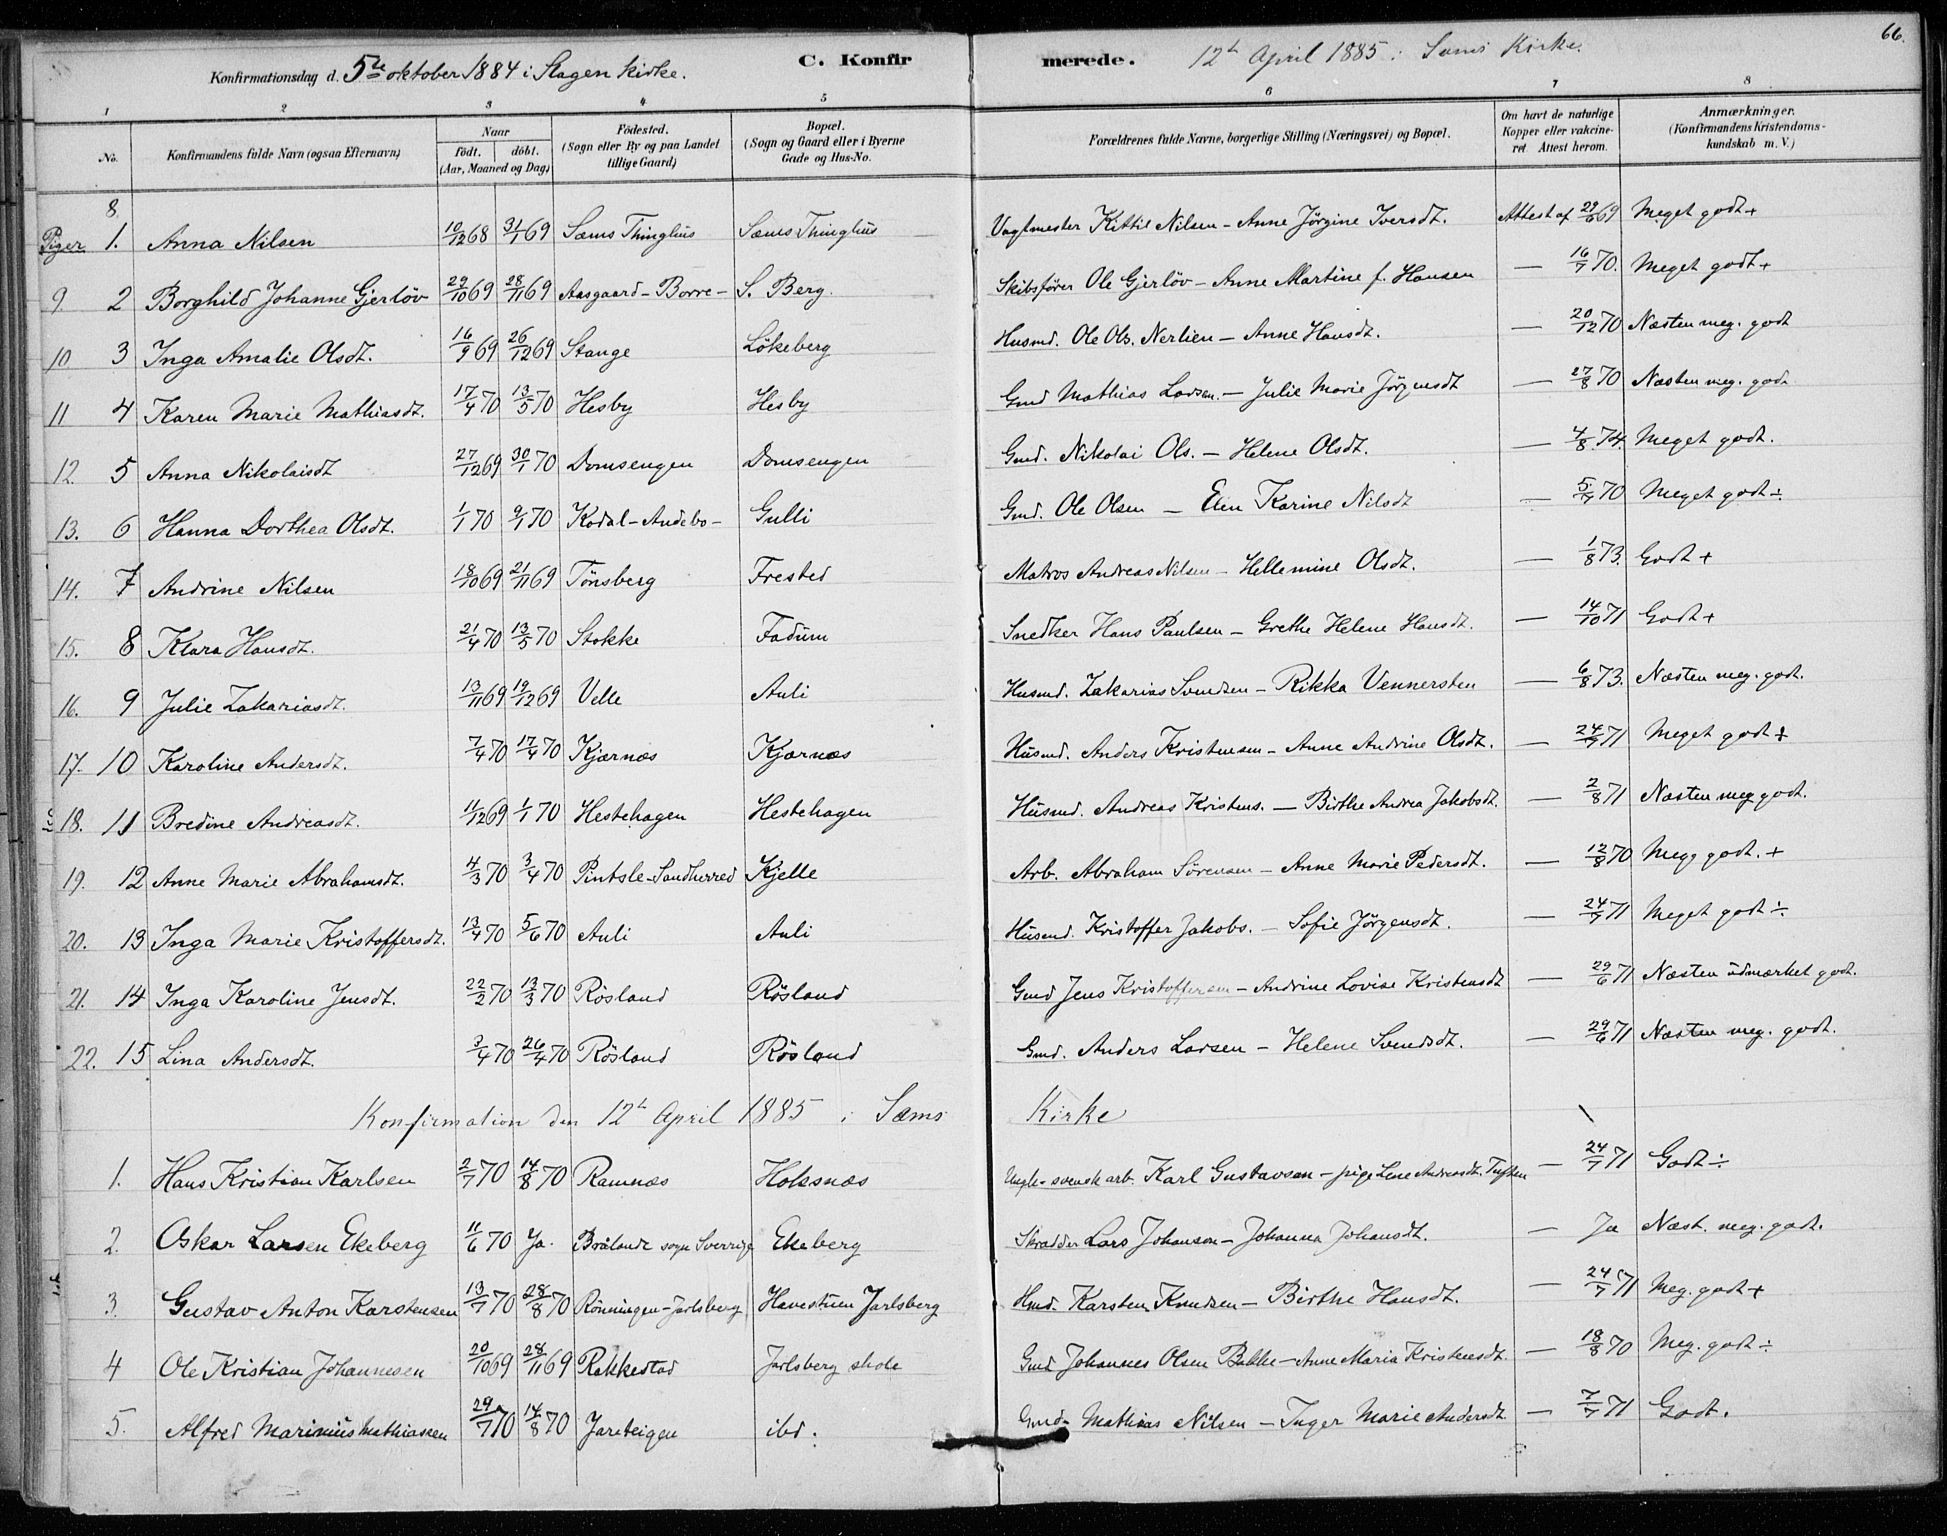 66.
Konfirmationsdag d. 5te oktober 1884 i Slagen kirke. C. Konfirmerede. 12te April 1885 i Sems Kirke.
1 2 3 4 5 6 7 8
No. Konfirmandens fulde Navn (ogsaa Efternavn) Naar födt. döbt. (Aar, Maaned og Dag) Födested. (Sogn eller By og paa Landet tillige Gaard) Bopæl. (Sogn og Gaard eller i Byerne Gade og Hus-No. Forældrenes fulde Navne, borgerlige Stilling (Næringsvei) og Bopæl. Om havt de naturlige Kopper eller vakcineret Attest herom. Anmærkninger. (Konfirmandens Kristendomskundskab m. V.)
Piger 8. 1. Anna Nilsen 10/12 68 31/1 69 Sæms Thinghus Sæms Thinghus Vagtmester Kittil Nilsen - Anne Jörgine Iversdt. Attest af 29/6 69 Meget godt +
9. 2 Borghild Johanne Gjerlöv 29/10 69 28/11 69 Aasgaard - Borre - S. Berg. Skibsförer Ole Gjerlöv - Anne Martine f. Hansen — 16/7 70. Meget godt +
10 3 Inga Amalie Olsdt. 16/9 69 26/12 69 Stange Lökeberg Husmd. Ole Ols. Nerlien - Anne Hansdt. — 20/12 70 Næsten meg. godt
11 4 Karen Marie Mathiasdt. 17/4 70 13/5 70 Hesby Hesby Gmd Mathias Larsen. - Julie Marie Jörgensdt — 27/8 70 Næsten meg. godt
12. 5 Anna Nikolaisdt 27/12 69 30/1 70 Domsengen Domsengen Gmd. Nikolai Ols. - Helene Olsdt. — 4/8 74. Meget godt.
13. 6 Hanna Dorthea Olsdt. 1/1 70 9/1 70 Kodal - Andebo - Gulli Gmd. Ole Olsen - Elen Karine Nilsdt — 5/7 70 Meget godt ÷
14. 7 Andrine Nilsen 18/10 69 21/11 69 Tönsberg Frested Matros Andreas Nilsen - Hellemine Olsdt. — 1/8 73. Godt +
15. 8 Klara Hansdt. 21/4 70 13/5 70 Stokke Fadum Snedker Hans Paulsen - Grethe Helene Hansdt. — 14/10 71 Godt +
16. 9 Julie Zakariasdt. 13/11 69 19/12 69 Velle Auli Husmd. Zakarias Svendsen - Rikka Vennersten — 6/8 73. Næsten meg. godt.
17. 10 Karoline Andersdt. 7/4 70 17/4 70 Kjærnæs Kjærnæs Husmd. Anders Kristensen - Anne Andrine Olsdt. — 24/7 71 Meget godt +
18. 11 Bredine Andreasdt. 11/12 69 1/1 70 Hestehagen Hestehagen Husmd. Andreas Kristens. - Birthe Andrea Jakobsdt. — 2/8 71 Næsten meg godt.
19. 12 Anne Marie Abrahamsdt. 4/3 70 3/4 70 Pintsle - Sandherred Kjelle Arb. Abraham Sörensen - Anne Marie Pedersdt. — 12/8 70 Meg. godt. +
20. 13 Inga Marie Kristoffersdt. 13/4 70 5/6 70 Auli Auli Husmd. Kristoffer Jakobs. - Sofie Jörgensdt. — 24/7 71 Meget godt ÷
21. 14 Inga Karoline Jensdt. 22/2 70 13/3 70 Rösland Rösland Gmd Jens Kristoffersen - Andrine Lovise Kristensdt — 29/6 71 Næsten udmærket godt.
22. 15 Lina Andersdt. 3/4 70 26/4 70 Rösland Rösland Gmd. Anders Larsen - Helene Svendsdt. — 29/6 71 Næsten meg. godt.
Konfirmation den 12te April 1885 i Sæms Kirke
1. Hans Kristian Karlsen 2/7 70 14/8 70 Ramnæs Holsnæs Ungk. svensk arb. Karl Gustavsen - pige Lene Andreasdt. Tuften — 24/7 71 Godt ÷
2. Oskar Larsen Ekeberg 11/6 70 Ja. Brålande sogn Sverrige Ekeberg Skrædder Lars Johansen - Johanna Johansdt. — Ja Næst. meg. godt.
3. Gustav Anton Karstensen 13/7 70 28/8 70 Rönningen - Jarlsberg Havestuen Jarlsberg Hmd. Karsten Knudsen - Birthe Hansdt. — 24/7 71 Meg. godt +
4 Ole Kristian Johannesen 20/10 69 28/11 69 Rakkestad Jarlsberg skole Gmd Johannes Olsen Bakke - Anne Maria Kristensdt. — 18/8 70 Meg. godt ÷
5. Alfred Marinius Mathiassen 29/7 70 14/8 70 Jareteigen ibd. Gmd. Mathias Nilsen - Inger Marie Andersdt — 7/7 71 Godt.